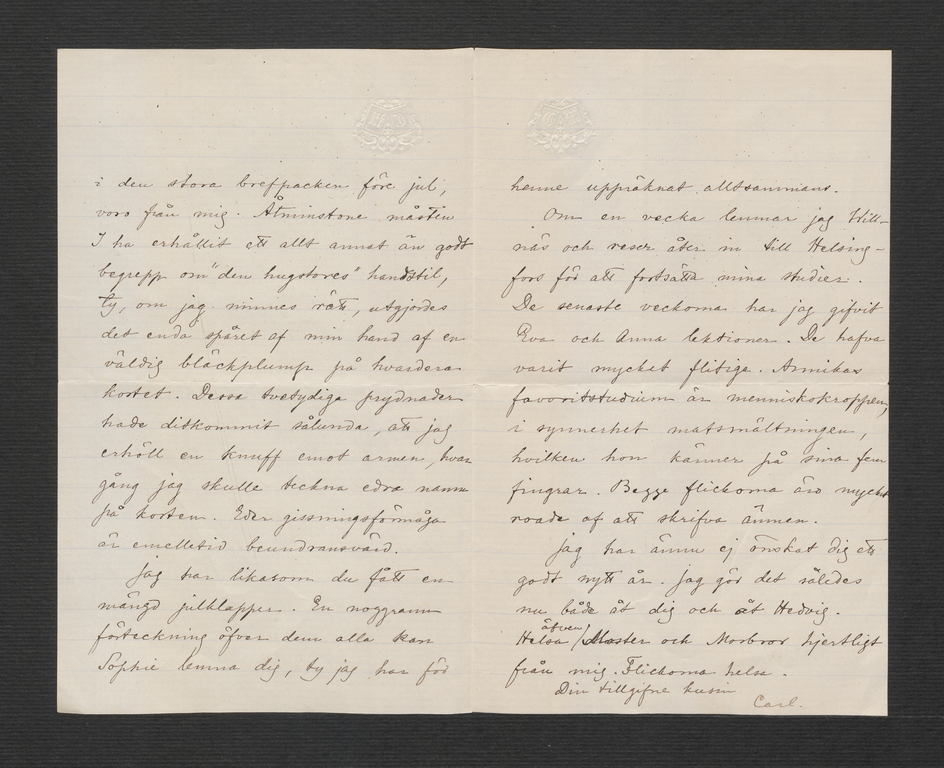 i den stora brefpacken före jul,
voro från mig. Åtminstone måsten
I ha erhållit ett allt annat än godt
begrepp om "den hugstores" handstil,
ty, om jag minnes rätt, utgjordes
det enda spåret af min hand af en
väldig bläckplump på hvardera
kortet. Dessa tvetydiga prydnader
hade ditkommit sålunda, att jag
erhöll en knuff emot armen, hvar
gång jag skulle teckna edra namn
på korten. Eder gissningsförmåga
är emellertid beundransvärd.
Jag har likasom du fått en
mängd julklappar. En noggrann
förteckning öfver dem alla kan
Sophie lemna dig, ty jag har för
henne uppräknat alltsammans.
Om en vecka lemnar jag Will-
näs och reser åter in till Helsing-
fors för att fortsätta mina studier.
De senaste veckorna har jag gifvit
Eva och Anna lektioner. De hafva
varit mycket flitiga. Annikas
favoritstudium är menniskokroppen,
i synnerhet matsmältningen,
hvilken hon känner på sina fem
fingrar. Begge flickorna äro mycket
roade af att skrifva ämnen.
Jag har ännu ej önskat dig ett
godt nytt år. Jag gör det således
nu både åt dig och åt Hedvig.
äfven
Helsa Moster och Morbror hjertligt
från mig. Flickorna helsa.
Din tillgifne kusin
Carl.